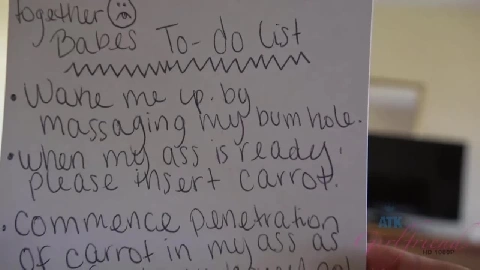 together
Babes To-do list
• Wake me up by
massaging my bumhole.
• when my ass is ready,
please insert carrot.
• Commence penetration
of carrot in my ass as
ATK
Girlfriends